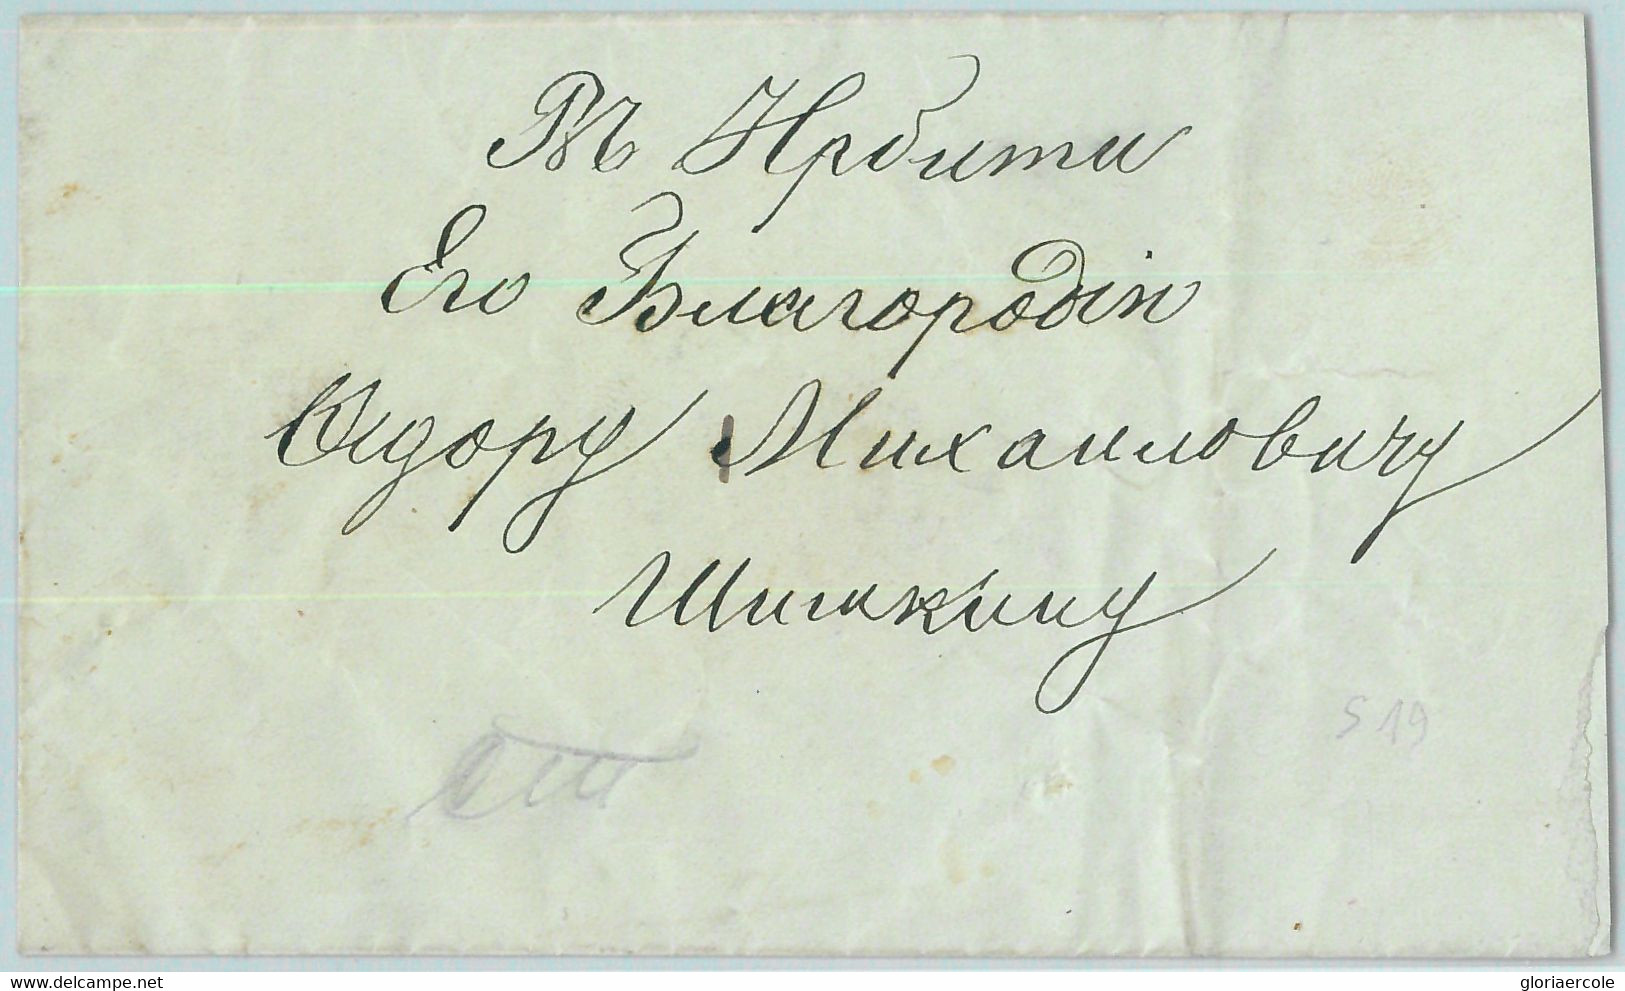 Въ Ирбити
Его Благородію
Ѳедору Михаиловичу
Шишкину
S 19
www.delcampe.net
gloriaercole